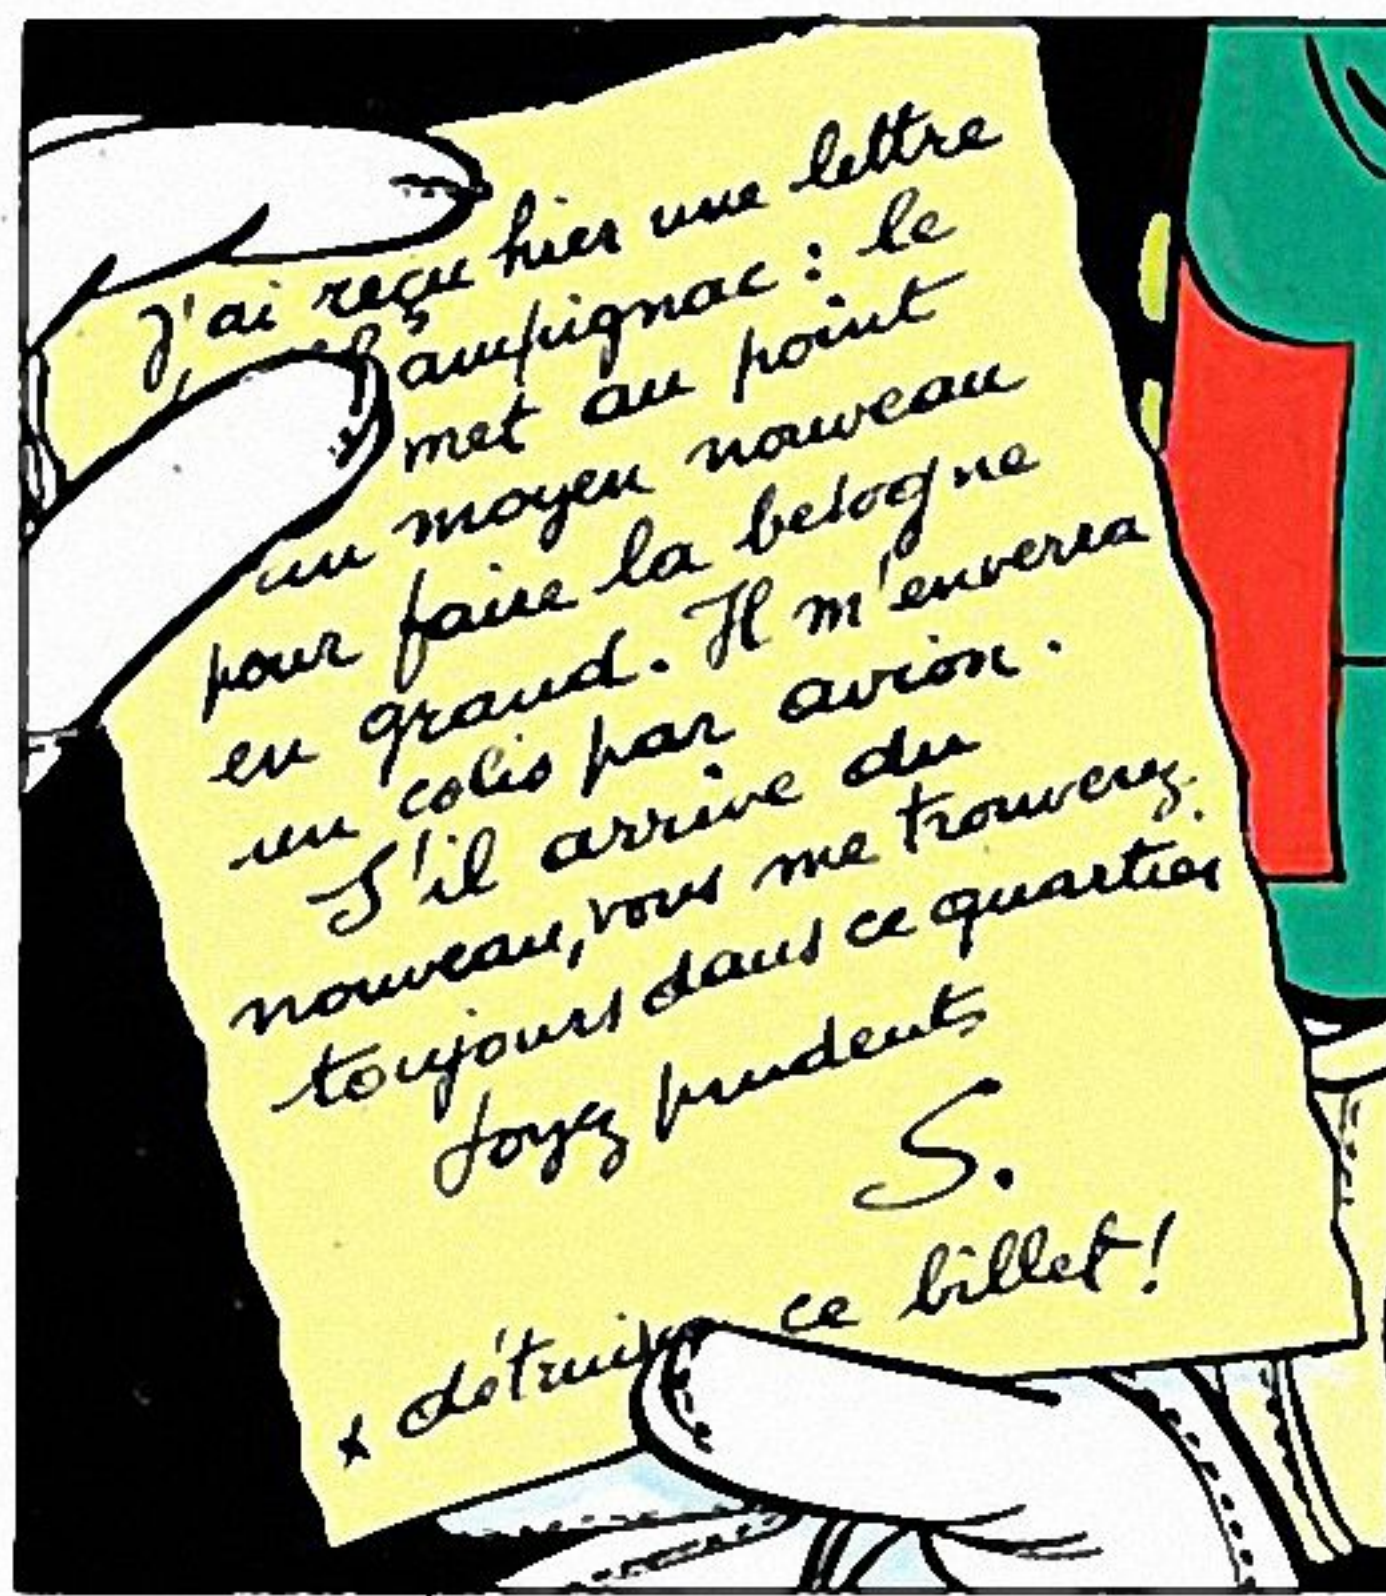 J'ai reçu hier une lettre
Champignac : le
met au point
un moyen nouveau
pour faire la besogne
en grand. Il m'enverra
un colis par avion.
S'il arrive du
nouveau, vous me trouverez
toujours dans ce quartier
soyez prudents
S.
ce billet !